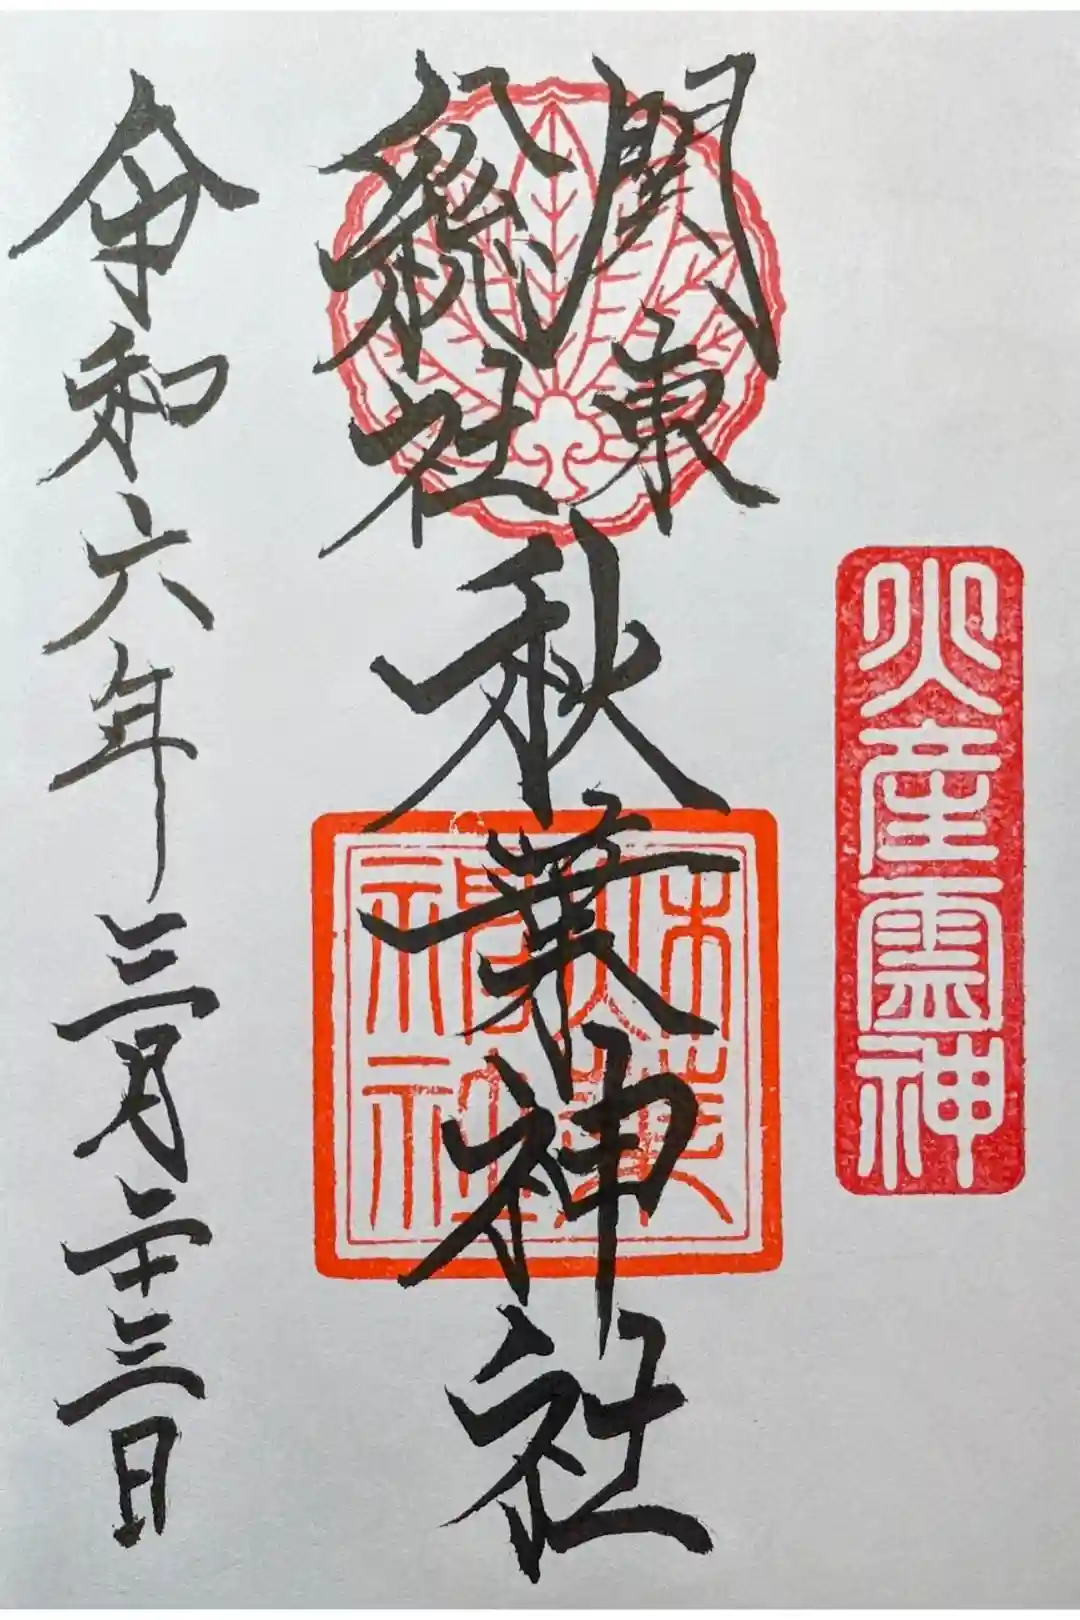 火産霊神
関東
総社
秋葉神社
令和六年三月二十三日